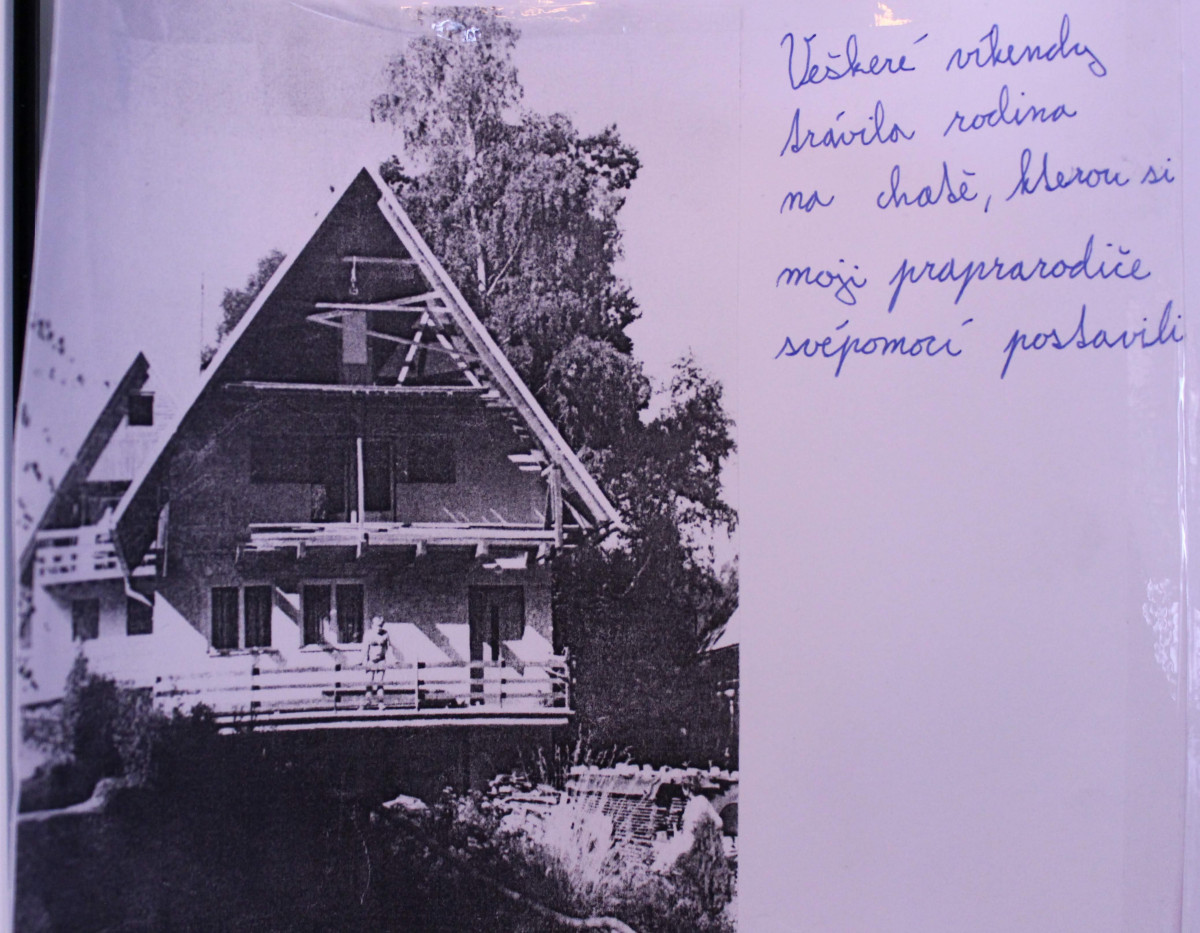 Veškeré víkendy
trávila rodina
na chatě, kterou si
moji praprarodiče
svépomocí postavili